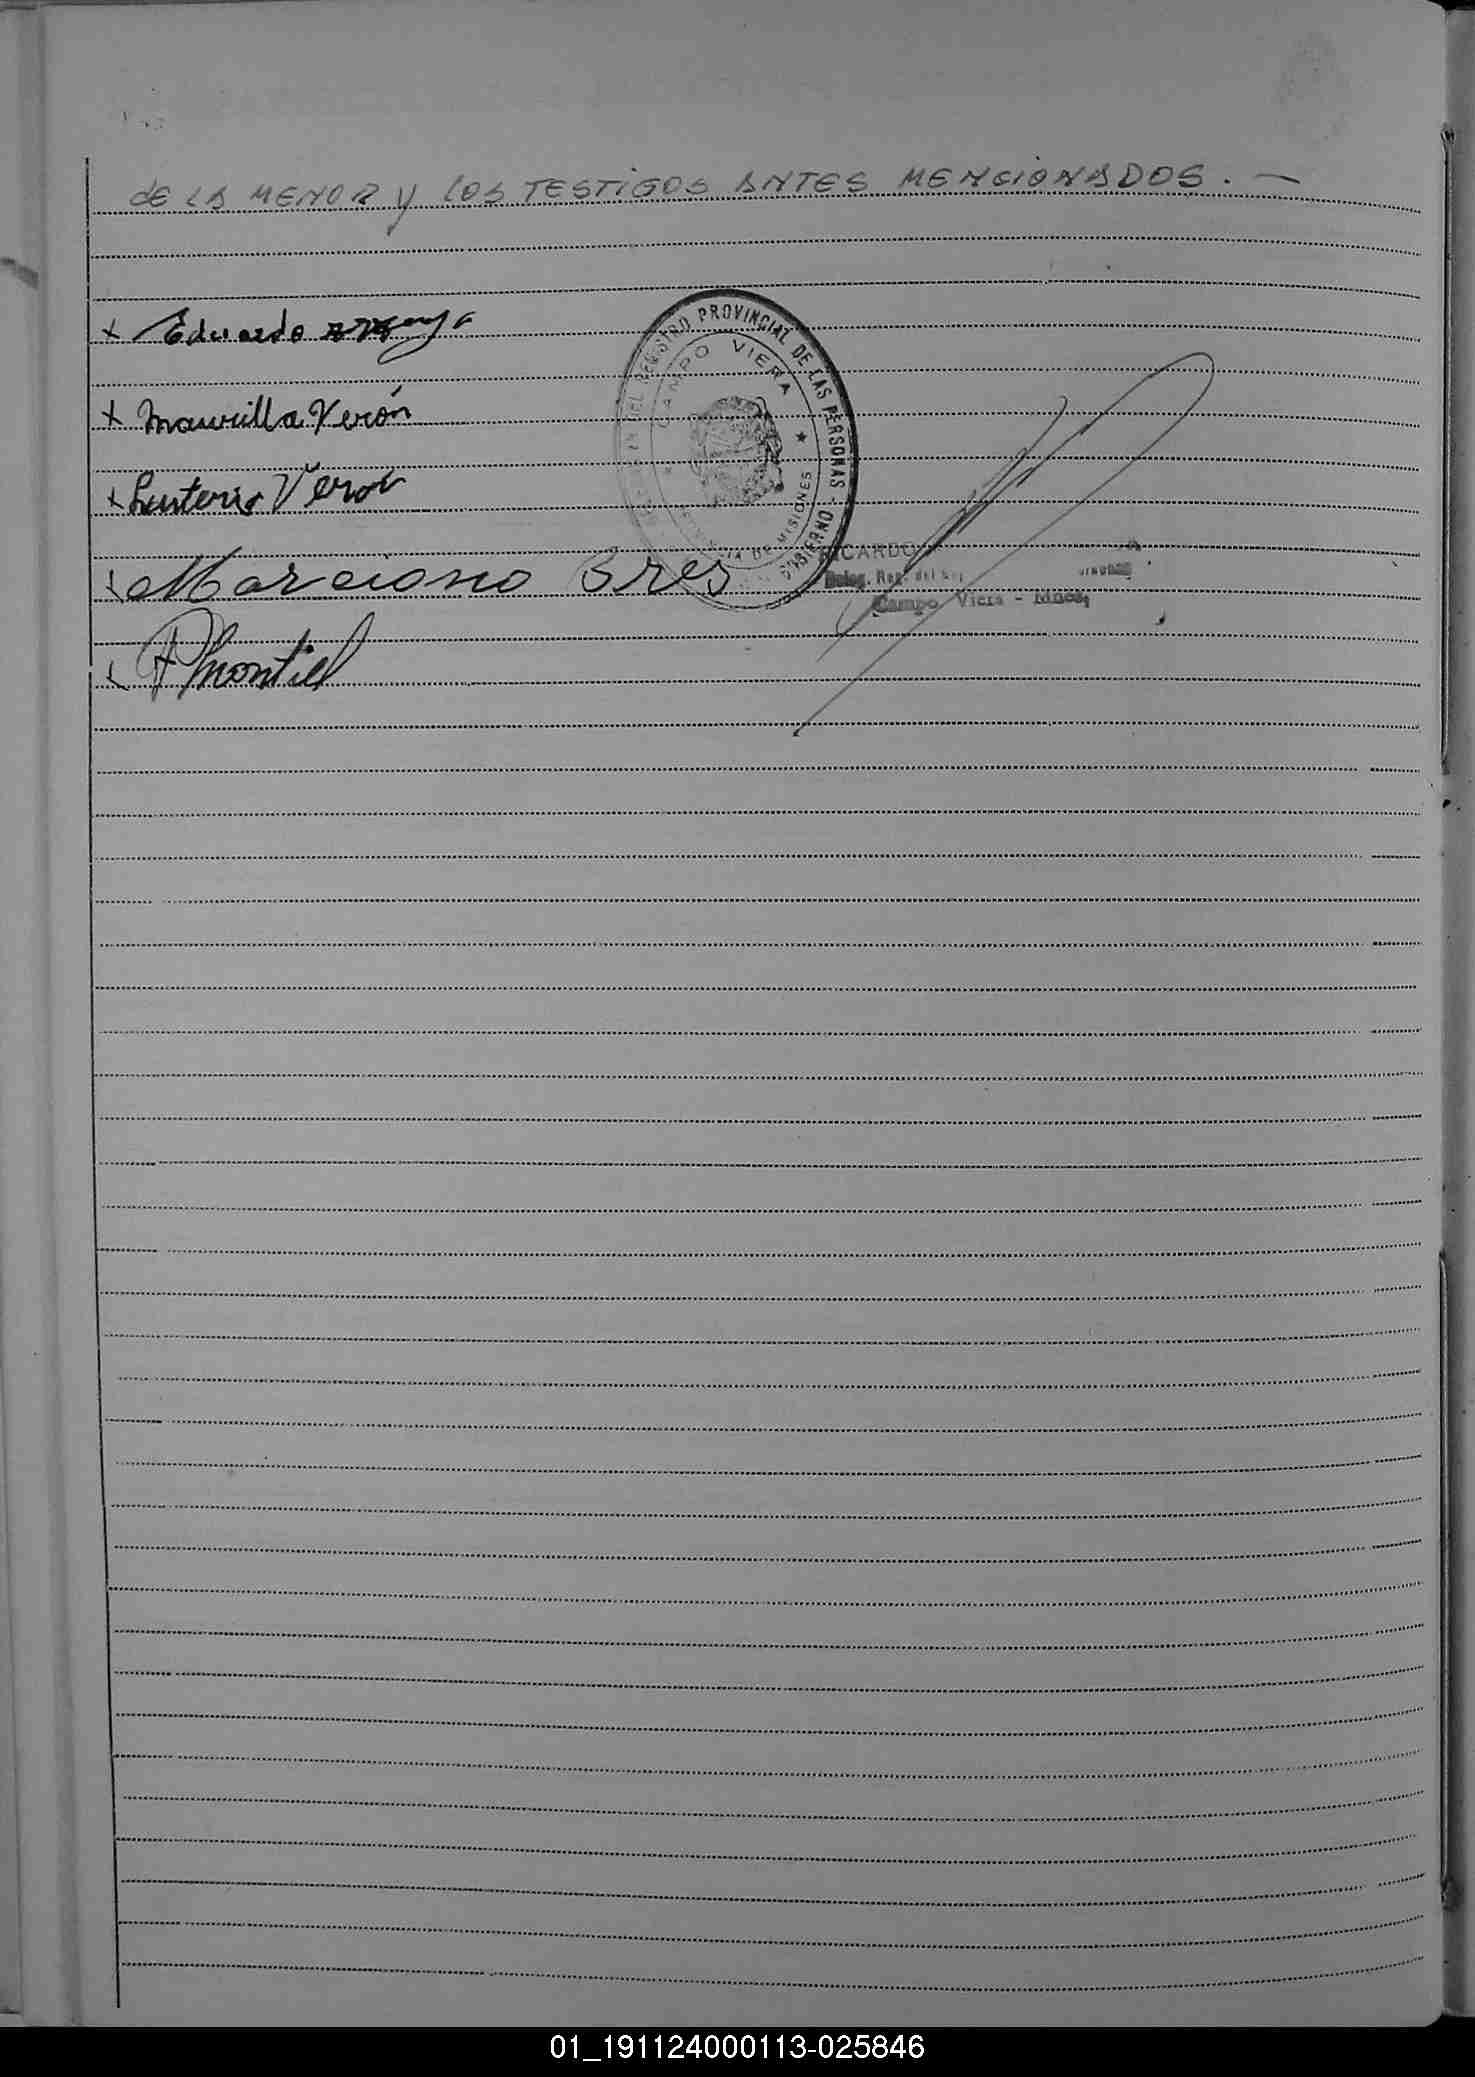 de LA MENOR y LOS TESTIGOS ANTES MENCIONADOS. —
x Eduardo
x Maurilla Verón
x Verón
x Marciano Bres
x Montiel
REGISTRO PROVINCIAL DE LAS PERSONAS - GOBIERNO
CAMPO VIERA
PROVINCIA DE MISIONES
RICARDO
Deleg. Reg. del
Campo Viera - Mnes,
01_191124000113-025846